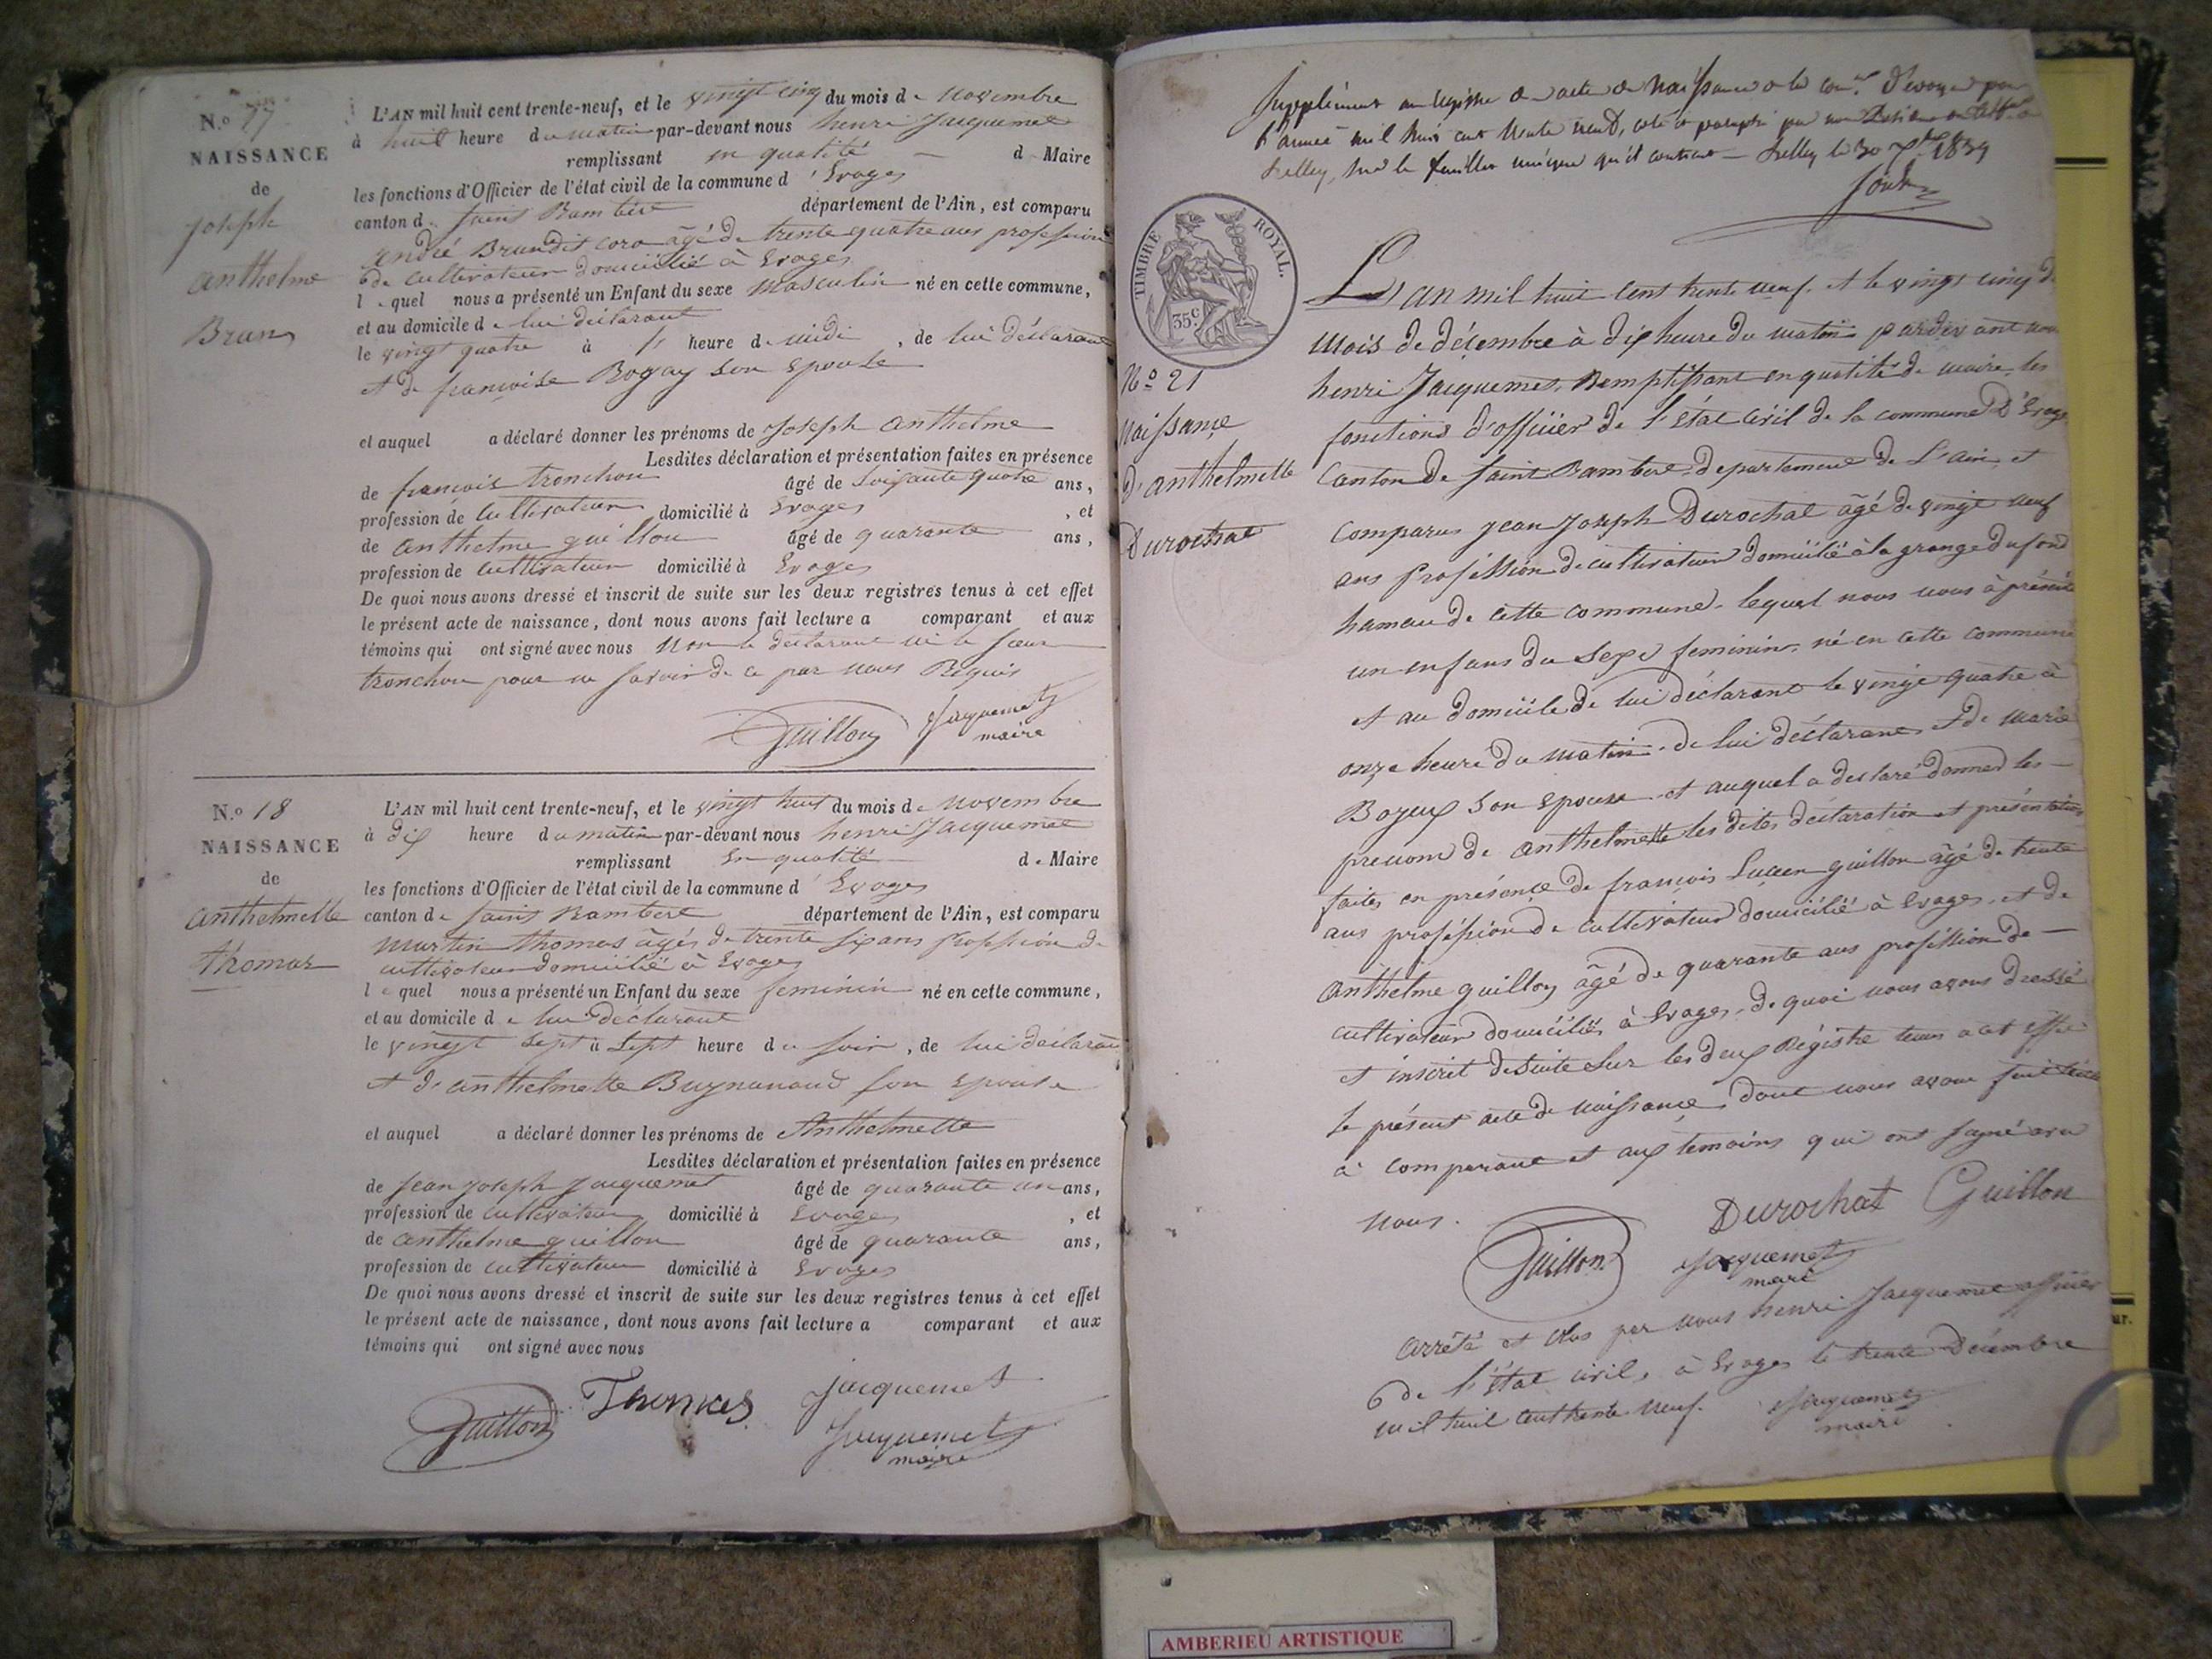 N.o 17
NAISSANCE
de
Joseph
anthelme
Brun
L'AN mil huit cent trente-neuf, et le vingt cinq du mois de novembre
à huit heure du matin par-devant nous henri Jacquemet
remplissant en qualité de Maire
les fonctions d'Officier de l'état civil de la commune d'Evoges
canton de saint Rambert département de l'Ain, est comparu
andré Brun dit coro âgé de trente quatre ans profession
de cultivateur domicilié à Evoges
lequel nous a présenté un Enfant du sexe masculin né en cette commune,
et au domicile de lui déclarant
le vingt quatre à heure de midi, de lui déclarant
et de françoise Bogay son epouse
et auquel a déclaré donner les prénoms de Joseph anthelme
Lesdites déclaration et présentation faites en présence
de françois tronchon âgé de soixante quatre ans,
profession de cultivateur domicilié à Evoges, et
de anthelme guillon âgé de quarante ans,
profession de cultivateur domicilié à Evoges
De quoi nous avons dressé et inscrit de suite sur les deux registres tenus à cet effet
le présent acte de naissance, dont nous avons fait lecture a comparant et aux
témoins qui ont signé avec nous non le déclarant ni le
tronchon pour ne savoir de ce par nous Requis
Guillon Jacquemet
maire
N.o 18
NAISSANCE
de
anthelmette
thomas
L'AN mil huit cent trente-neuf, et le vingt huit du mois de novembre
à dix heure du matin par-devant nous henri Jacquemet
remplissant en qualité de Maire
les fonctions d'Officier de l'état civil de la commune d'Evoges
canton de saint Rambert département de l'Ain, est comparu
martin thomas âgés de trente six ans profession de
cultivateur domicilié à Evoges
lequel nous a présenté un Enfant du sexe feminin né en cette commune,
et au domicile de lui déclarant
le vingt sept à sept heure du soir, de lui déclarant
et d'anthelmette Buynanaud son epouse
et auquel a déclaré donner les prénoms de Anthelmette
Lesdites déclaration et présentation faites en présence
de jean joseph jacquemet âgé de quarante un ans,
profession de cultivateur domicilié à Evoges, et
de anthelme guillon âgé de quarante ans,
profession de cultivateur domicilié à Evoges
De quoi nous avons dressé et inscrit de suite sur les deux registres tenus à cet effet
le présent acte de naissance, dont nous avons fait lecture a comparant et aux
témoins qui ont signé avec nous
Guillon Thomas jacquemet
Jacquemet
maire
Supplément au registre de acte de Naissance de la com.ne d'Evoges pour
l'année mil huit cent trente neuf, coté et paraphé par
Belley, sur le feuillet unique qu'il contient — Belley le 30 1839
TIMBRE ROYAL.
35c
No 21
Naissance
d'anthelmette
Durochat
L'an mil huit cent trente neuf. et le vingt cinq du
mois de décembre à dix heure du matin pardevant nous
henri Jacquemet, Remplissant en qualité de maire, les
fonctions d'officier de l'état civil de la commune D'Evoges
Canton de saint Rambert, departement de L'ain, est
Comparus jean joseph Durochat âgé de vingt neuf
ans profession de cultivateur domicilié à la grange du fond
hameau de cette commune. lequel nous nous à présenté
un enfans du sexe feminin, né en cette commune
et au domicile de lui déclarant le vingt quatre à
onze heure du matin. de lui déclarant et de marie
Bozeux son epouse et auquel a déclaré donner les —
prenom de anthelmette les dites déclaration et présentation
faites en présence de françois Lucien guillon âgé de trente
ans profession de cultivateur domicilié à Evoges. et de
anthelme guillon âgé de quarante ans profession de —
cultivateur domiciliés à Evoges, de quoi nous avons dressé
et inscrit de suite sur les deux Régistre tenus a cet effet
le présent acte de naissance, dont nous avons fait lecture
à comparant et aux temoins qui ont signé avec
nous.
Durochat Guillon
Guillon Jacquemet
maire
arrêté et clos par nous henri Jacquemet officier
de l'état civil, à Evoges le trente Décembre
mil huit cent trente neuf. Jacquemet
maire
ur.
AMBERIEU ARTISTIQUE